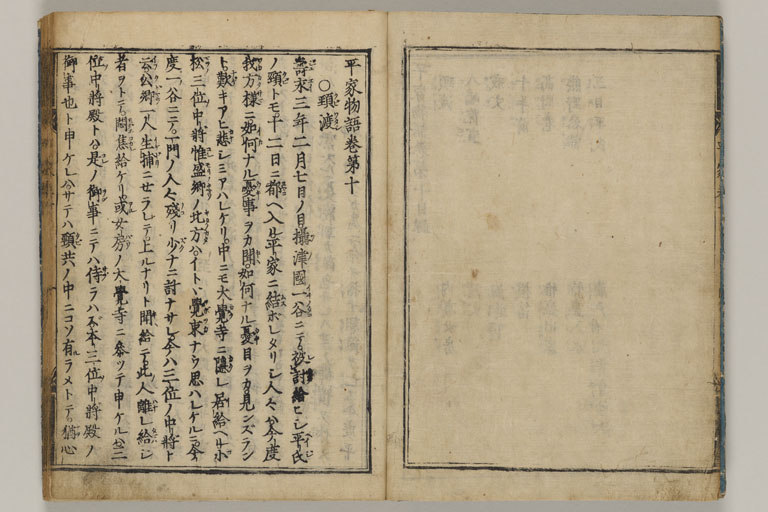 平家物語巻第十
○頸渡
壽永三年二月七日ノ日攝津國一谷ニテ被討給ヒシ平氏
ノ頸トモ十二日ニ都ヘ入ル平家ニ結ホレタリシ人々ハ今度
我方様ニ如何ナル憂事ヲカ聞如何ナル憂目ヲカ見ンズラン
ト歎キアヒ悲シミアハレケリ中ニモ大覺寺ニ隠レ居給ヘル小
松三位中將惟盛卿ノ北方ハイトヽ覺東ナウ思ハレケルニ今
度一谷ニテ一門ノ人々残リ少ナニ討ナサレ今ハ三位ノ中將ト
云公卿一人生捕ニセラレテ上ルナリト聞給テ此人離レ給ハシ
者ヲトテ悶焦給ケリ或女房ノ大覺寺ニ參ツテ申ケルハ三
位中將殿トハ是ノ御事ニテハ侍ラハズ本三位中將殿ノ
御事也ト申ケレハサテハ頸共ノ中ニコソ有ラメトテ猶心